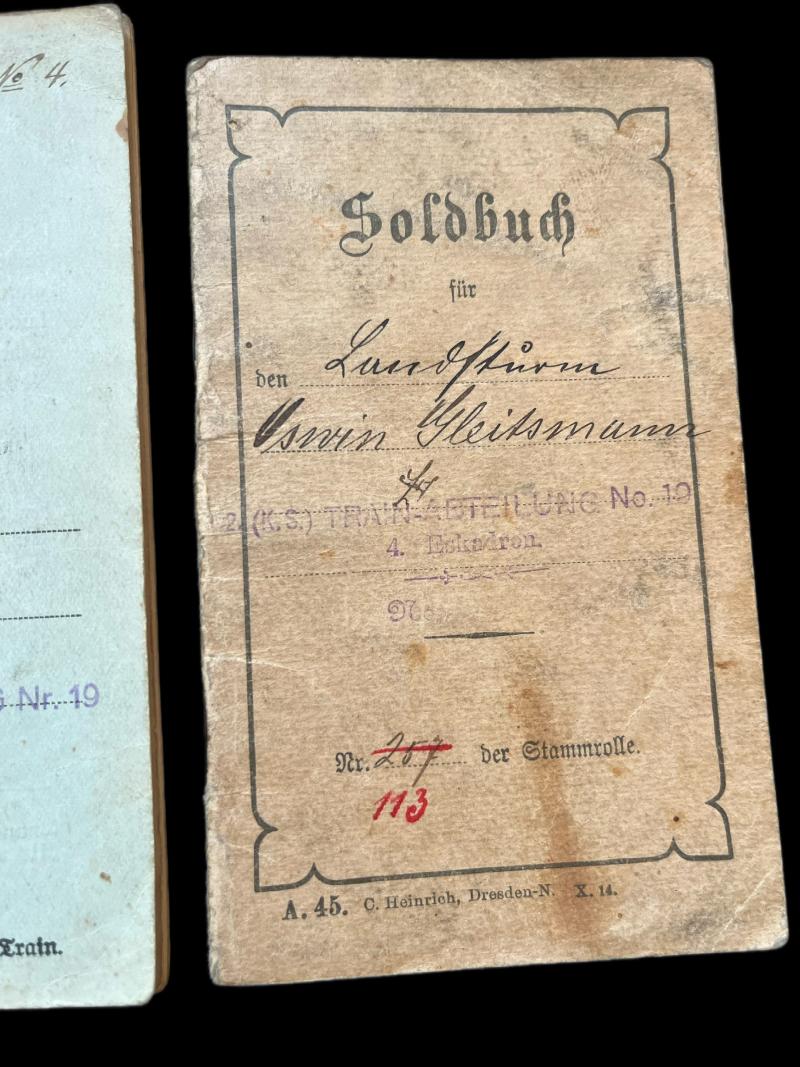 No 4.
G Nr. 19
Train.
Soldbuch
für
den Landsturm
Oswin Gleitsmann
2. (K.S.) TRAIN-ABTEILUNG No. 19
4. Eskadron.
Nr. 257 der Stammrolle.
113
A. 45. C. Heinrich, Dresden-N. X. 14.